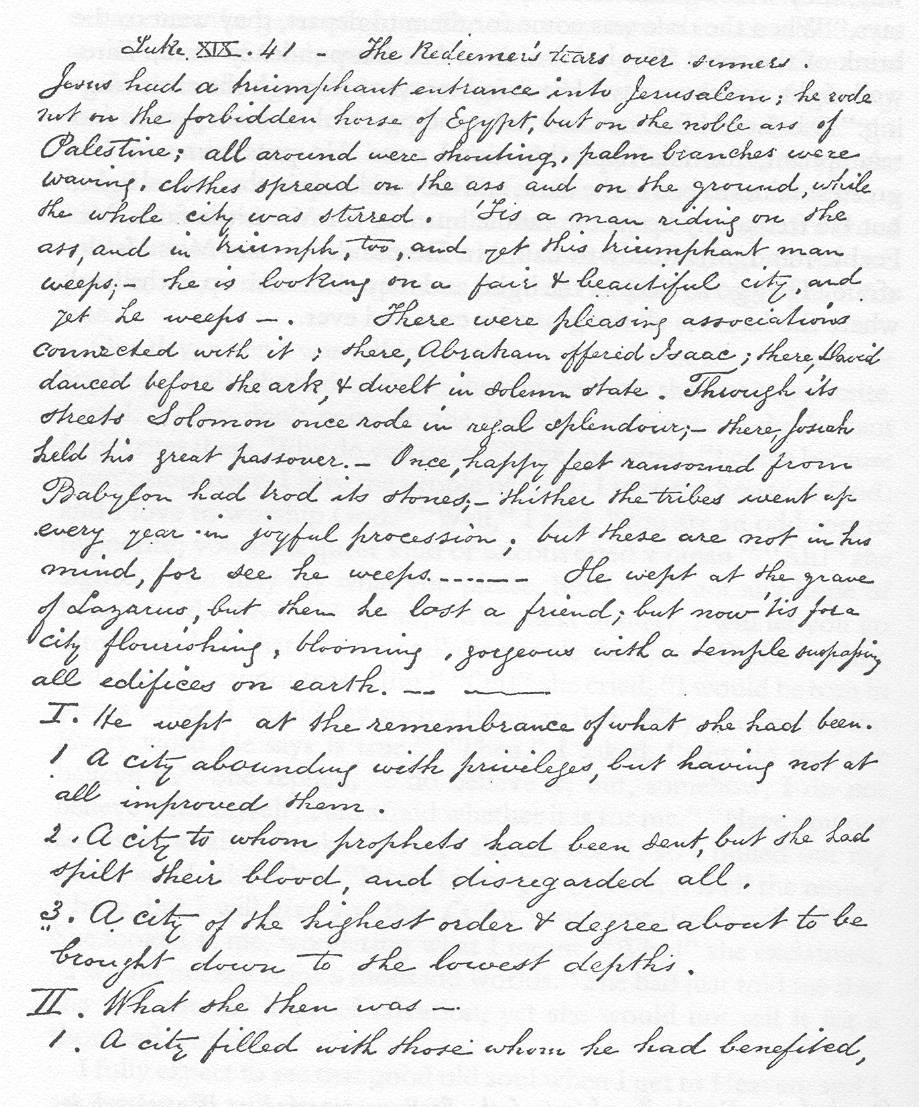 Luke. XIX. 41. - The Redeemer's tears over sinners.
Jesus had a triumphant entrance into Jerusalem; he rode
not on the forbidden horse of Egypt, but on the noble ass of
Palestine; all around were shouting, palm branches were
waving, clothes spread on the ass and on the ground, while
the whole city was stirred. 'Tis a man riding on the
ass, and in triumph, too, and yet this triumphant man
weeps;- he is looking on a fair & beautiful city, and
yet he weeps -. There were pleasing associations
connected with it; there, Abraham offerid Isaac; there, David
danced before the ark, & dwelt in solemn state. Through its
streets Solomon once rode in regal splendour;- there, Josiah
held his great passover.- Once, happy feet ransomed from
Babylon had trod its stones;- thither the tribes went up
every year in joyful procession. but these are not in his
mind, for see he weeps....... He wept at the grave
of Lazarus, but then he lost a friend; but now 'tis for a
city flourishing, blooming, gorgeous with a temple surpassing
all edifices on earth. -- ——
I. He wept at the remembrance of what she had been.
1 A city abounding with priveleges, but having not at
all improved them.
2. A city to whom prophets had been sent, but she had
spilt their blood, and disregarded all.
3. A city of the highest order & degree about to be
brought down to the lowest depths.
II. What she then was -
1. A city filled with those whom he had benefited,